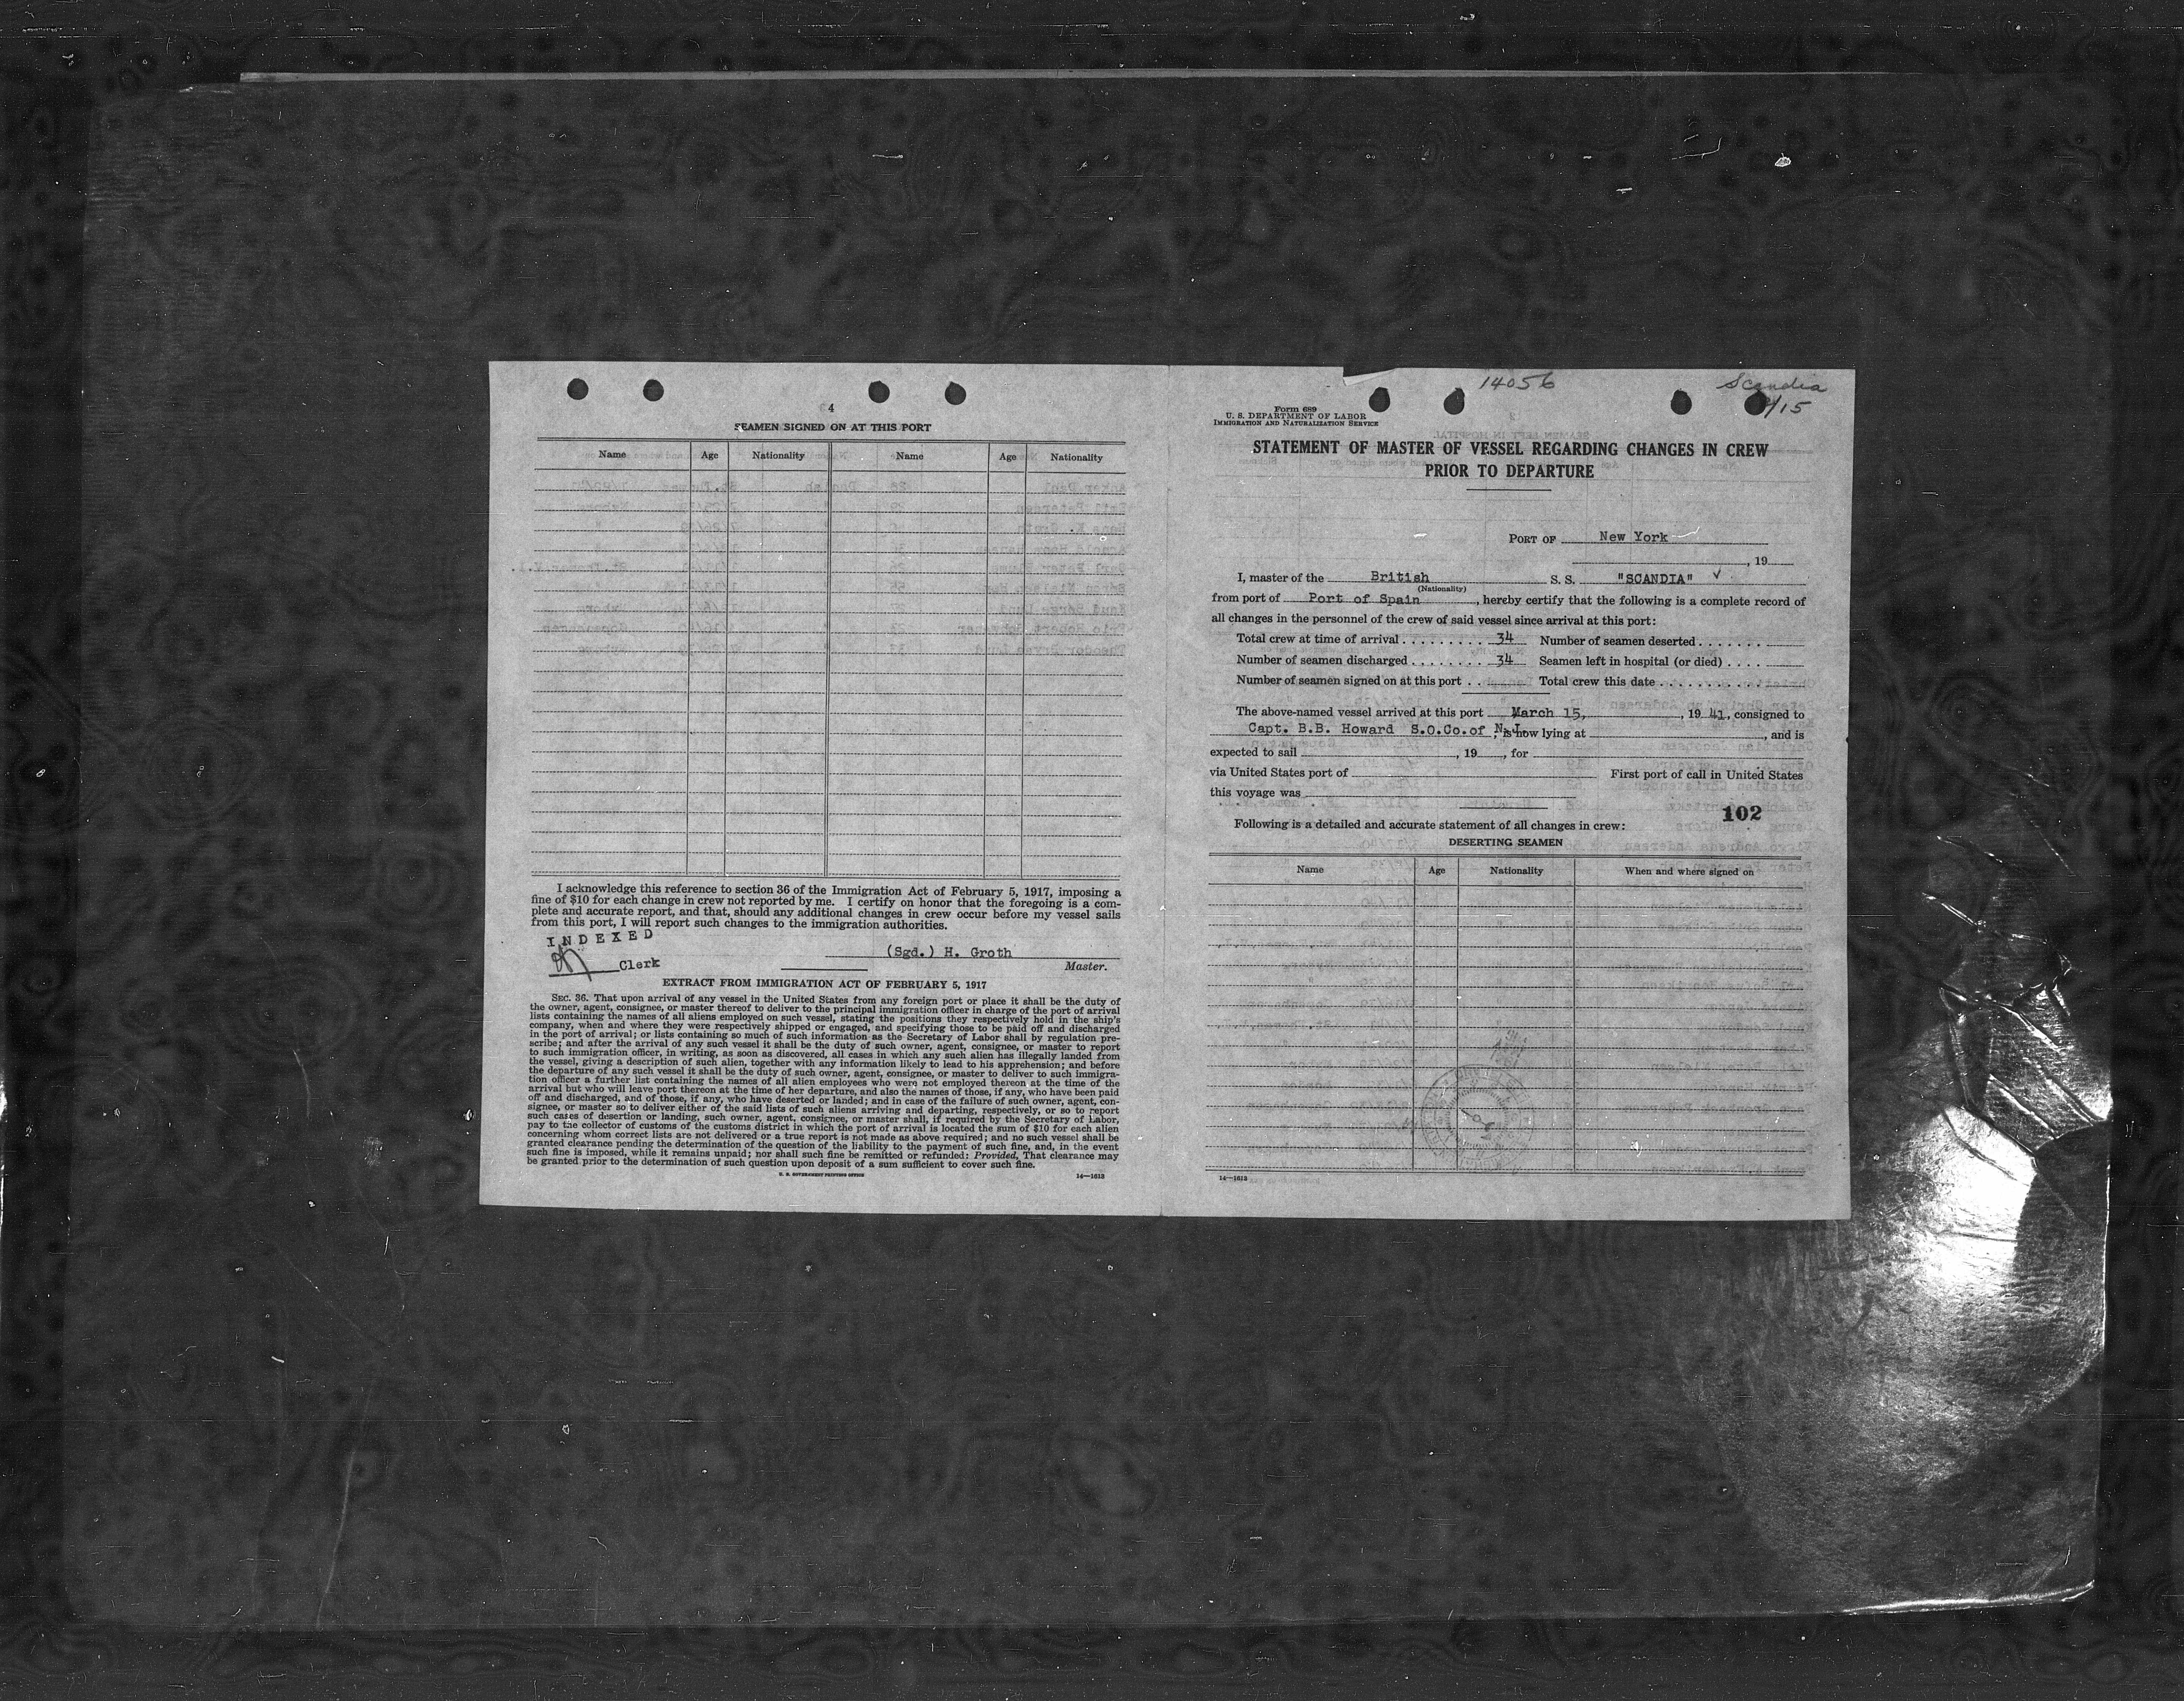 4
SEAMEN SIGNED ON AT THIS PORT
Name Age Nationality Name Age Nationality
I acknowledge this reference to section 36 of the Immigration Act of February 5, 1917, imposing a
fine of $10 for each change in crew not reported by me. I certify on honor that the foregoing is a com-
plete and accurate report, and that, should any additional changes in crew occur before my vessel sails
from this port, I will report such changes to the immigration authorities.
INDEXED
(Sgd.) H. Groth
Clerk
Master.
EXTRACT FROM IMMIGRATION ACT OF FEBRUARY 5, 1917
SEC. 36. That upon arrival of any vessel in the United States from any foreign port or place it shall be the duty of
the owner, agent, consignee, or master thereof to deliver to the principal immigration officer in charge of the port of arrival
lists containing the names of all aliens employed on such vessel, stating the positions they respectively hold in the ship's
company, when and where they were respectively shipped or engaged, and specifying those to be paid off and discharged
in the port of arrival; or lists containing so much of such information as the Secretary of Labor shall by regulation pre-
scribe; and after the arrival of any such vessel it shall be the duty of such owner, agent, consignee, or master to report
to such immigration officer, in writing, as soon as discovered, all cases in which any such alien has illegally landed from
the vessel, giving a description of such alien, together with any information likely to lead to his apprehension; and before
the departure of any such vessel it shall be the duty of such owner, agent, consignee, or master to deliver to such immigra-
tion officer a further list containing the names of all alien employees who were not employed thereon at the time of the
arrival but who will leave port thereon at the time of her departure, and also the names of those, if any, who have been paid
off and discharged, and of those, if any, who have deserted or landed; and in case of the failure of such owner, agent, con-
signee, or master so to deliver either of the said lists of such aliens arriving and departing, respectively, or so to report
such cases of desertion or landing, such owner, agent, consignee, or master shall, if required by the Secretary of Labor,
pay to the collector of customs of the customs district in which the port of arrival is located the sum of $10 for each alien
concerning whom correct lists are not delivered or a true report is not made as above required; and no such vessel shall be
granted clearance pending the determination of the question of the liability to the payment of such fine, and, in the event
such fine is imposed, while it remains unpaid; nor shall such fine be remitted or refunded: Provided, That clearance may
be granted prior to the determination of such question upon deposit of a sum sufficient to cover such fine.
U. S. GOVERNMENT PRINTING OFFICE 14—1613
14056
Scandia
/15
Form 689
U. S. DEPARTMENT OF LABOR
IMMIGRATION AND NATURALIZATION SERVICE
STATEMENT OF MASTER OF VESSEL REGARDING CHANGES IN CREW
PRIOR TO DEPARTURE
PORT OF New York
, 19
I, master of the British S. S. "SCANDIA" ✓
(Nationality)
from port of Port of Spain, hereby certify that the following is a complete record of
all changes in the personnel of the crew of said vessel since arrival at this port:
Total crew at time of arrival . . . . . . . . . . 34 Number of seamen deserted . . . . . . .
Number of seamen discharged . . . . . . . . 34 Seamen left in hospital (or died) . . . .
Number of seamen signed on at this port . . Total crew this date . . . . . . . . . . . .
The above-named vessel arrived at this port March 15, , 19 41, consigned to
Capt. B.B. Howard S.O.Co.of N.J., is now lying at , and is
expected to sail , 19 , for
via United States port of First port of call in United States
this voyage was
102
Following is a detailed and accurate statement of all changes in crew:
DESERTING SEAMEN
Name Age Nationality When and where signed on
14—1613